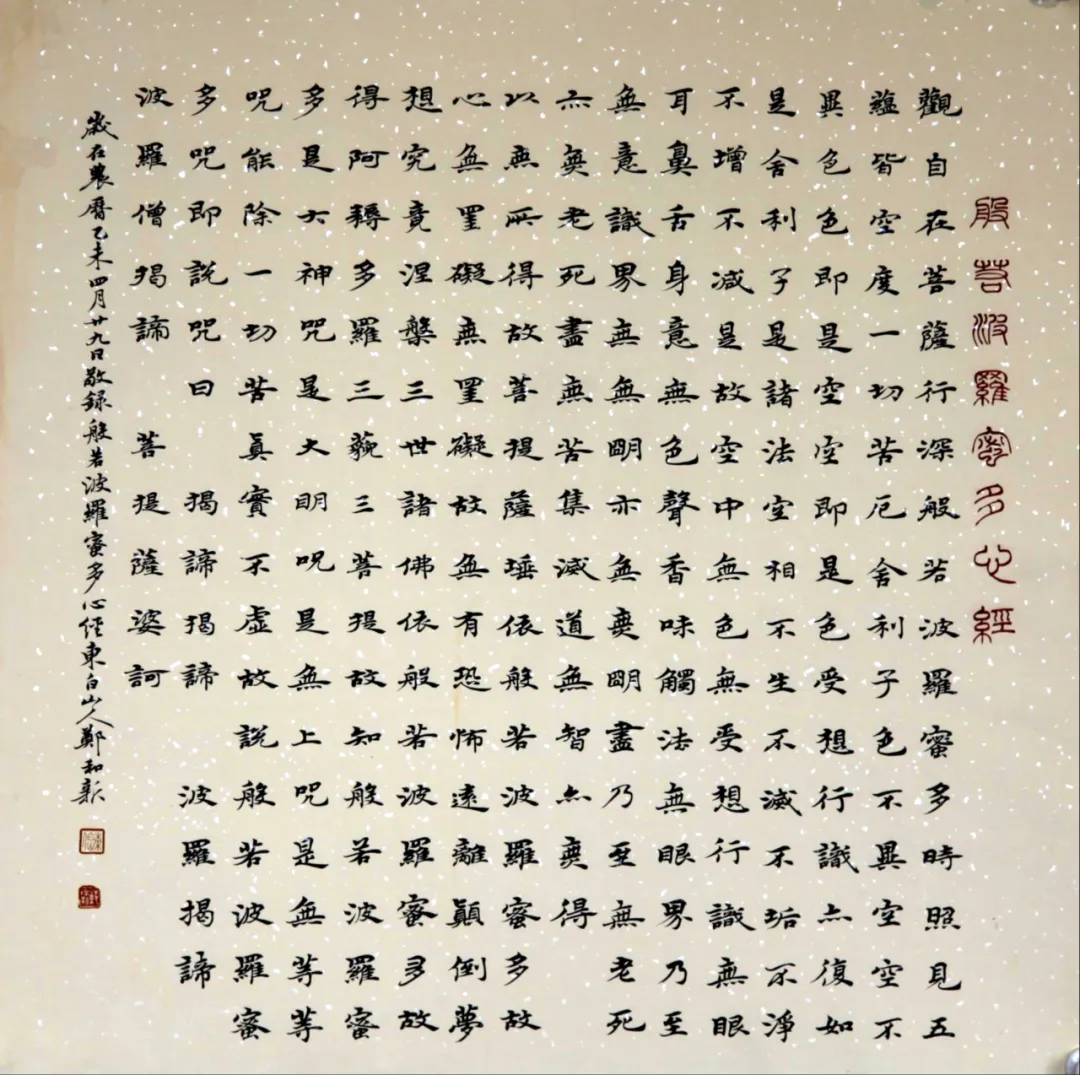 般若波羅蜜多心經
觀自在菩薩行深般若波羅蜜多時照見五
蘊皆空度一切苦厄舍利子色不異空空不
異色色即是空空即是色受想行識亦復如
是舍利子是諸法空相不生不滅不垢不淨
不增不減是故空中無色無受想行識無眼
耳鼻舌身意無色聲香味觸法無眼界乃至
無意識界無無明亦無無明盡乃至無老死
亦無老死盡無苦集滅道無智亦無得
以無所得故菩提薩埵依般若波羅蜜多故
心無罣礙無罣礙故無有恐怖遠離顛倒夢
想究竟涅槃三世諸佛依般若波羅蜜多故
得阿耨多羅三藐三菩提故知般若波羅蜜
多是大神咒是大明咒是無上咒是無等等
咒能除一切苦真實不虛故說般若波羅蜜
多咒即說咒曰 揭諦揭諦 波羅揭諦
波羅僧揭諦 菩提薩婆訶
歲在農曆乙未四月廿九日敬錄般若波羅蜜多心經東白山人鄭和新